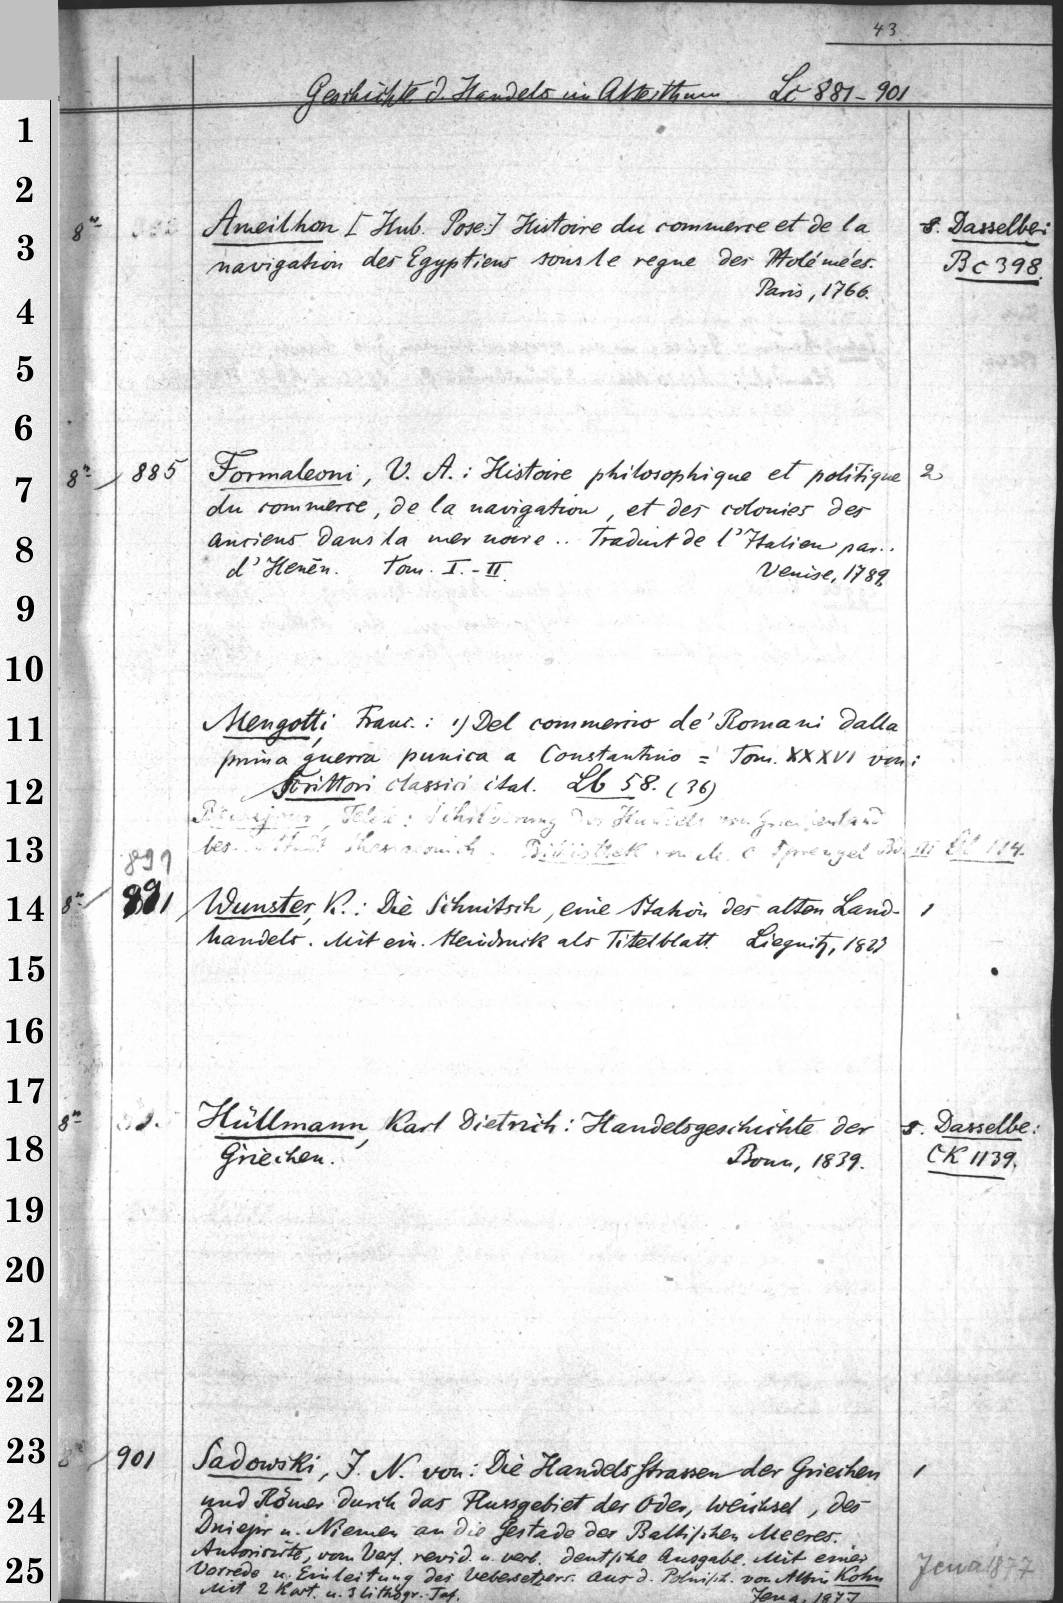 43
Geschichte d. Handels im Alterthum Lc 881-901
1
2
8° Ameilhon [Hub. Pose.] Histoire du commerce et de la s. Dasselbe:
3
navigation des Egyptiens sous le regne des Ptolémées. Bc 398.
Paris, 1766.
4
5
6
8° 885 Formaleoni, V. A.: Histoire philosophique et politique 2
7
du commerce, de la navigation, et des colonies des
8
anciens dans la mer noire.. Traduit de l'Italien par..
d'Henēn. Tom. I.-II. Venise, 1789.
9
10
11
Mengotti, Franc.: 1) Del commercio de' Romani dalla
prima guerra punica a Constantino = Tom. XXXVI von:
12
Scrittori classici ital. Lb 58. (36)
Felix: Schilderung des Handels von Griechenland
13
bes. Bibliothek von M. C. Sprengel Bd. III
891
14
8° 891 Wunster, K.: Die Schnitsch, eine Station des alten Land- 1
handels. Mit ein. Steindruck als Titelblatt. Liegnitz, 1827
15
16
17
8° Hüllmann, Karl Dietrich: Handelsgeschichte der s. Dasselbe:
18
Griechen. Bonn, 1839. CK 1139.
19
20
21
22
23
8° 901 Sadowski, J. N. von: Die Handelsstrassen der Griechen 1
24
und Römer durch das Flussgebiet der Oder, Weichsel, des
Dniepr u. Niemen an die Gestade des Baltischen Meeres.
Autorisirte, vom Verf. revid. u. verb. deutsche Ausgabe. Mit einer
25
Vorrede u. Einleitung des Uebersetzers. Aus d. Polnisch. von Albin Kohn Jena 1877
Mit 2 Kart. u. 3 lithogr. Taf. Jena, 1877